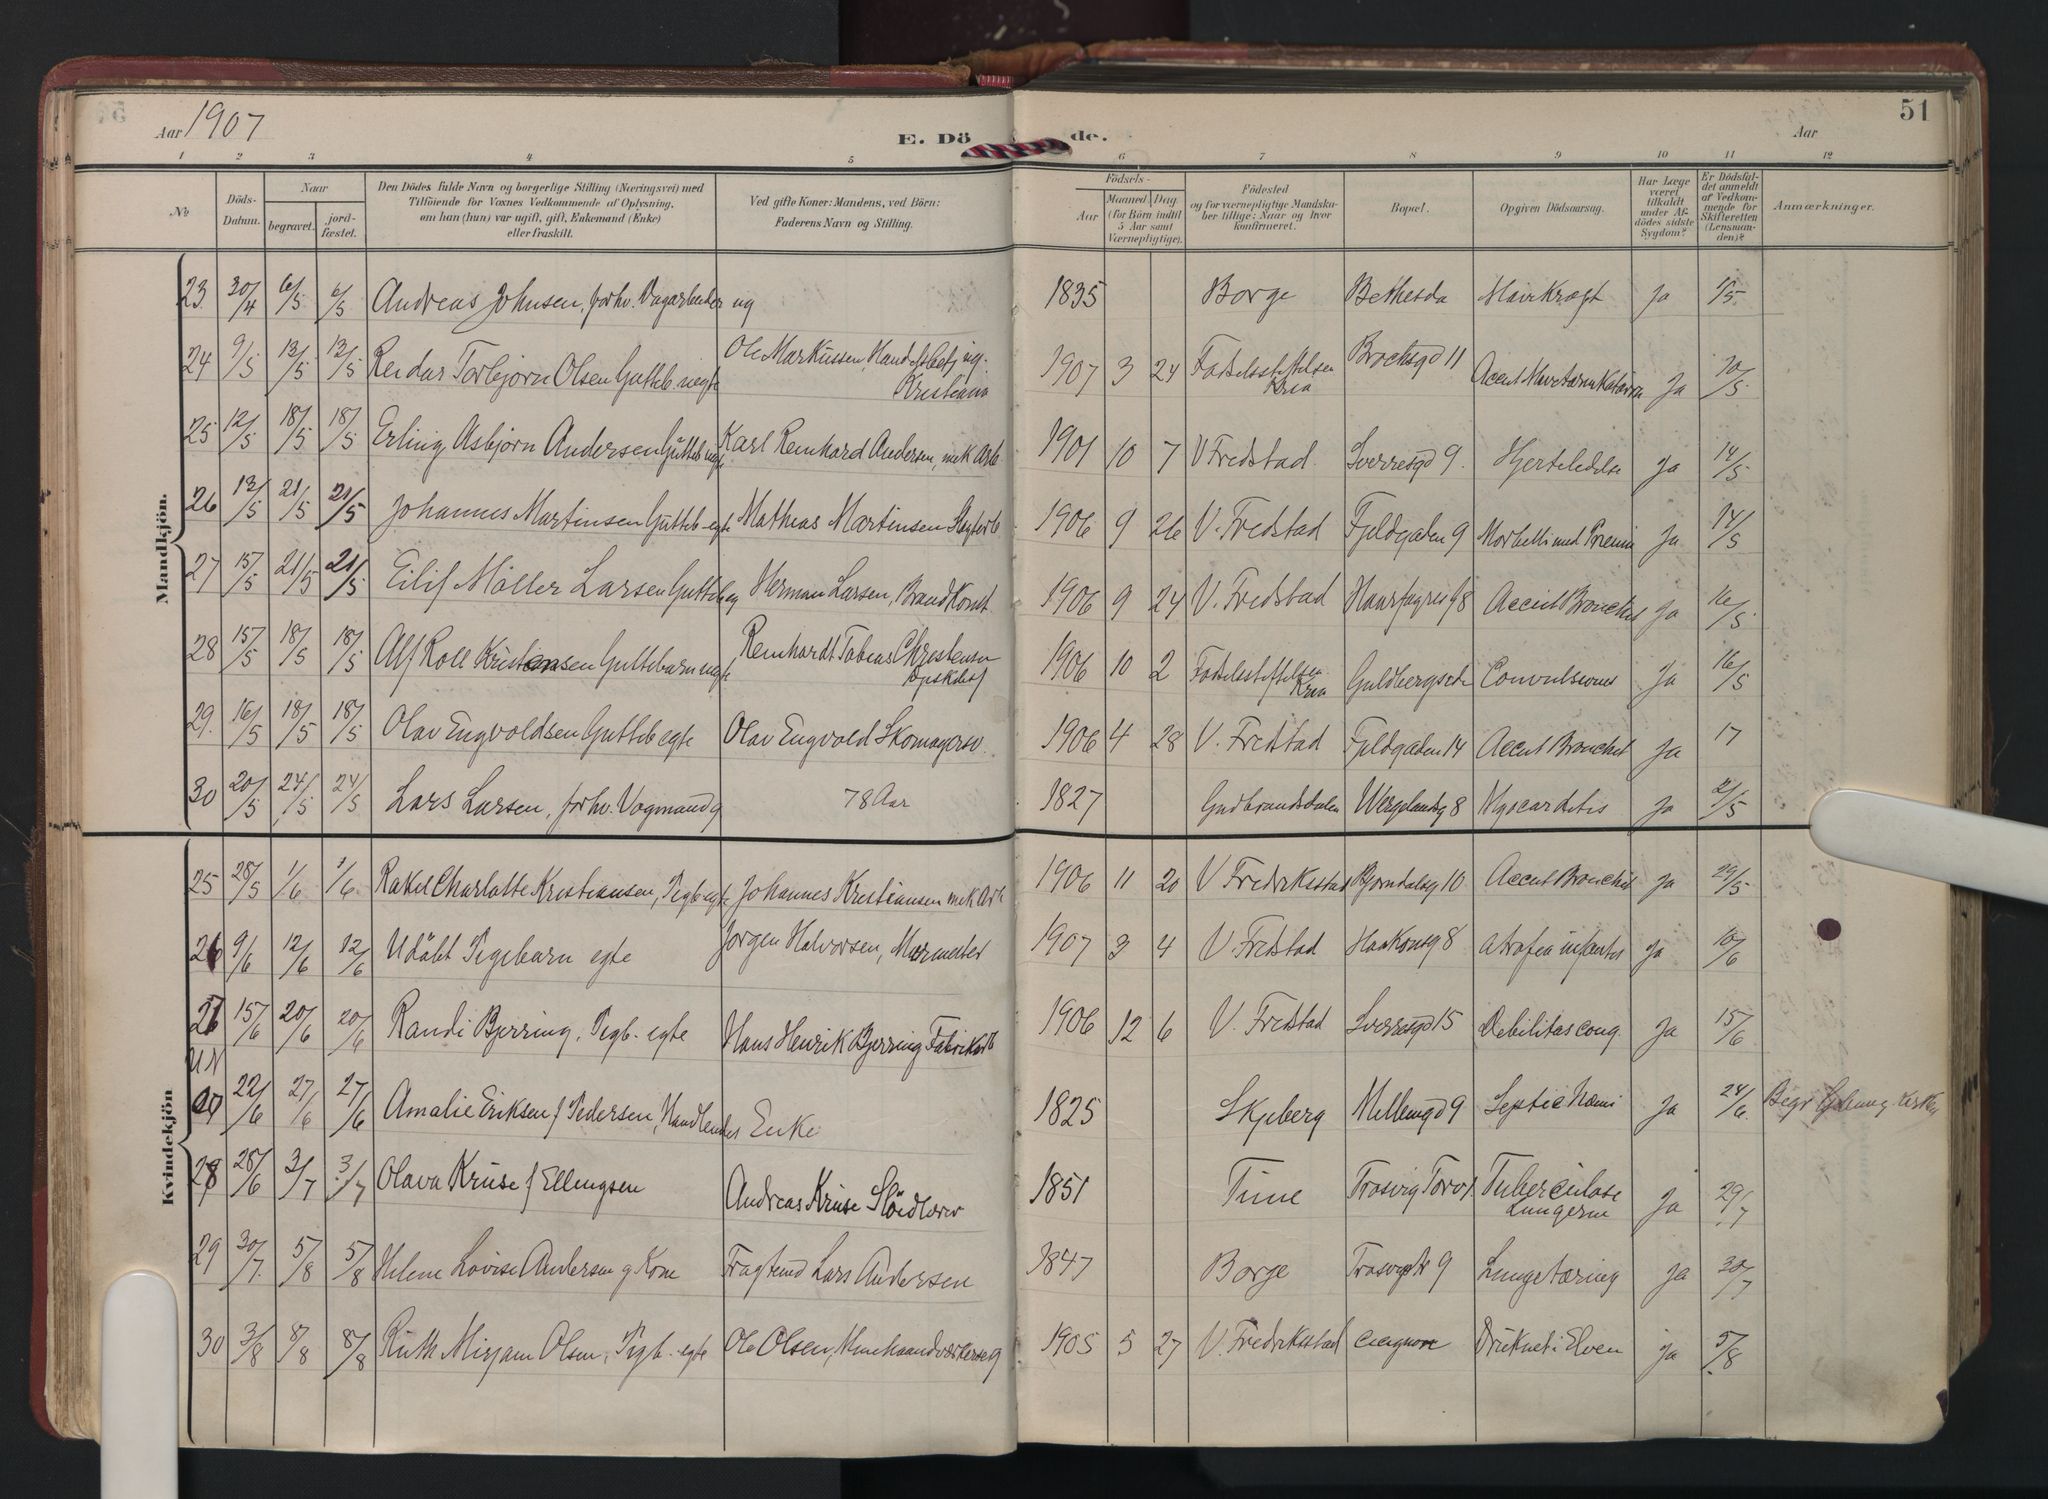 Aar 1907
E. Dö de.
Aar
51
1 2 3 4 5 6 7 8 9 10 11 12
No
Döds-Datum.
Naar
begravet.
jord-fæstet.
Den Dödes fulde Navn og borgerlige Stilling (Næringsvei) med
Tilföiende for Voxnes Vedkommende af Oplysning,
om han (hun) var ugift, gift, Enkemand (Enke)
eller fraskilt.
Ved gifte Koner: Mandens, ved Börn:
Faderens Navn og Stilling.
Födsels-
Aar
Maaned (for Börn indtil 5 Aar samt Værnepligtige).
Dag
Födested
og for værnepligtige Mandskaber tillige: Naar og hvor konfirmeret.
Bopæl.
Opgiven Dödsaarsag.
Har Læge været tilkaldt under Afdödes sidste Sygdom?
Er Dödsfaldet anmeldt af Vedkommende for Skifteretten (Lensmanden)?
Anmærkninger.
Mandkjön.
23 30/4 6/5 6/5 Andreas Johnsen, forhv. Dagarbeider ug 1835 Borge Bethesda Mavekræft ja 1/5
24 9/5 13/5 13/5 Reidar Torbjørn Olsen Gutteb. uegte Ole Markussen, Handelsbetj ug. Kristiania 1907 3 24 Fødselsstiftelsen Kria Brochsgd 11 Accut Mavetarmkatarrh Ja 10/5
25 12/5 18/5 18/5 Erling Asbjørn Andersen Gutteb uegte Karl Reinhard Andersen, mek Arb 1901 10 7 V Fredstad. Sverresgd 9. Hjertelidelse Ja 14/5
26 13/5 21/5 21/5 Johannes Martinsen Gutteb egte Mathias Martinsen 1906 9 26 V. Fredstad Fjeldgaden 9 Morbilli med Ja 14/5
27 15/5 21/5 21/5 Eilif Möller Larsen Gutteb eg Herman Larsen, Brandkonst. 1906 9 24 V. Fredstad Haarfagresg 8 Accut Bronchit Ja 16/5
28 15/5 18/5 18/5 Alf Roll Kristensen Guttebarn uegte Reinhardt Tobias Christensen 1906 10 2 Fødselsstiftelsen Kria Convulsiones Ja 16/5
29. 16/5 18/5 18/5 Olav Engvoldsen Gutteb egte Olav Engvold Skomagersv. 1906 4 28 V. Fredstad Fjeldgaden 14 Accut Bronchit Ja 17
30 20/5 24/5 24/5 Lars Larsen, forhv. Vognmand g 78 Aar 1827 Gudbrandsdalen Wergelandsg 8 Myocarditis Ja 21/5
Kvindekjön
25 28/5 1/6 1/6 Rakel Charlotte Kristiansen, Pigb. egte Johannes Kristiansen mek Arb 1906 11 20 V Fredrikstad Bjørndalsg 10 Accut Bronchit Ja 29/5
26 9/6 12/6 12/6 Udöbt Pigebarn egte Jørgen Halvorsen, Murmester 1907 3 4 V. Fredstad Haakonsg 8 Atrofia infantis Ja 10/6
27 15/6 20/6 20/6 Randi Bjerring, Pigb. egte Hans Henrik Bjerring Fabrikarb 1906 12 6 V. Fredstad Sverresgd 15 Debilitas cong. Ja 15/6
UN
27 22/6 27/6 27/6 Amalie Eriksen f Pedersen, Handlendes Enke 1825 Skjeberg Septichæmi Ja 24/6 Begr Glemmg. kirken
28 28/6 3/7 3/7 Olava Kruse f Ellingsen Andreas Kruse Slöidlærer 1851 Tune Trosvig Torv 1. Tuberculose Lungerne Ja 29/7
29 30/7 5/8 5/8 Helene Lovise Andersen g Kone Fragtemd Lars Andersen 1847 Borge 9 Lungetæring ja 30/7
30 3/8 8/8 8/8 Ruth Mirjam Olsen, Pigb. egte Ole Olsen, 1905 5 27 V. Fredrikstad Druknet i Elven ja 5/8